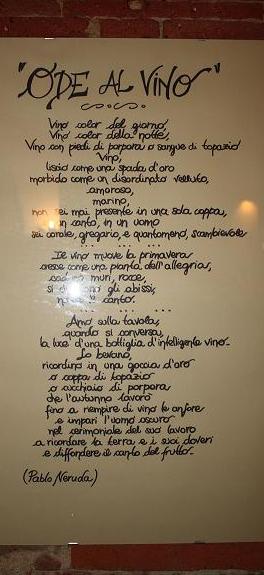 "ODE AL VINO"
Vino color del giorno,
Vino color della notte,
Vino con piedi di porpora o sangue di topazio
Vino,
liscio come una spada d'oro
morbido come un disordinato velluto,
amoroso,
marino,
non sei mai presente in una sola coppa,
un canto, in un uomo
sei corale, gregario, e quantomeno, scambievole
... ... ...
Il vino muove la primavera
cresce come una pianta dell'allegria,
cadono muri, rocce,
si gli abissi,
canto.
... ... ...
Amo sulla tavola,
quando si conversa,
la luce d'una bottiglia d'intelligente vino.
Lo bevano,
ricordino in ogni goccia d'oro
o coppa di topazio
o cucchiaio di porpora
che l'autunno lavorò
fino a riempire di vino le anfore
e impari l'uomo oscuro
nel cerimoniale del suo lavoro
a ricordare la terra e i suoi doveri
e diffondere il canto del frutto.
(Pablo Neruda)